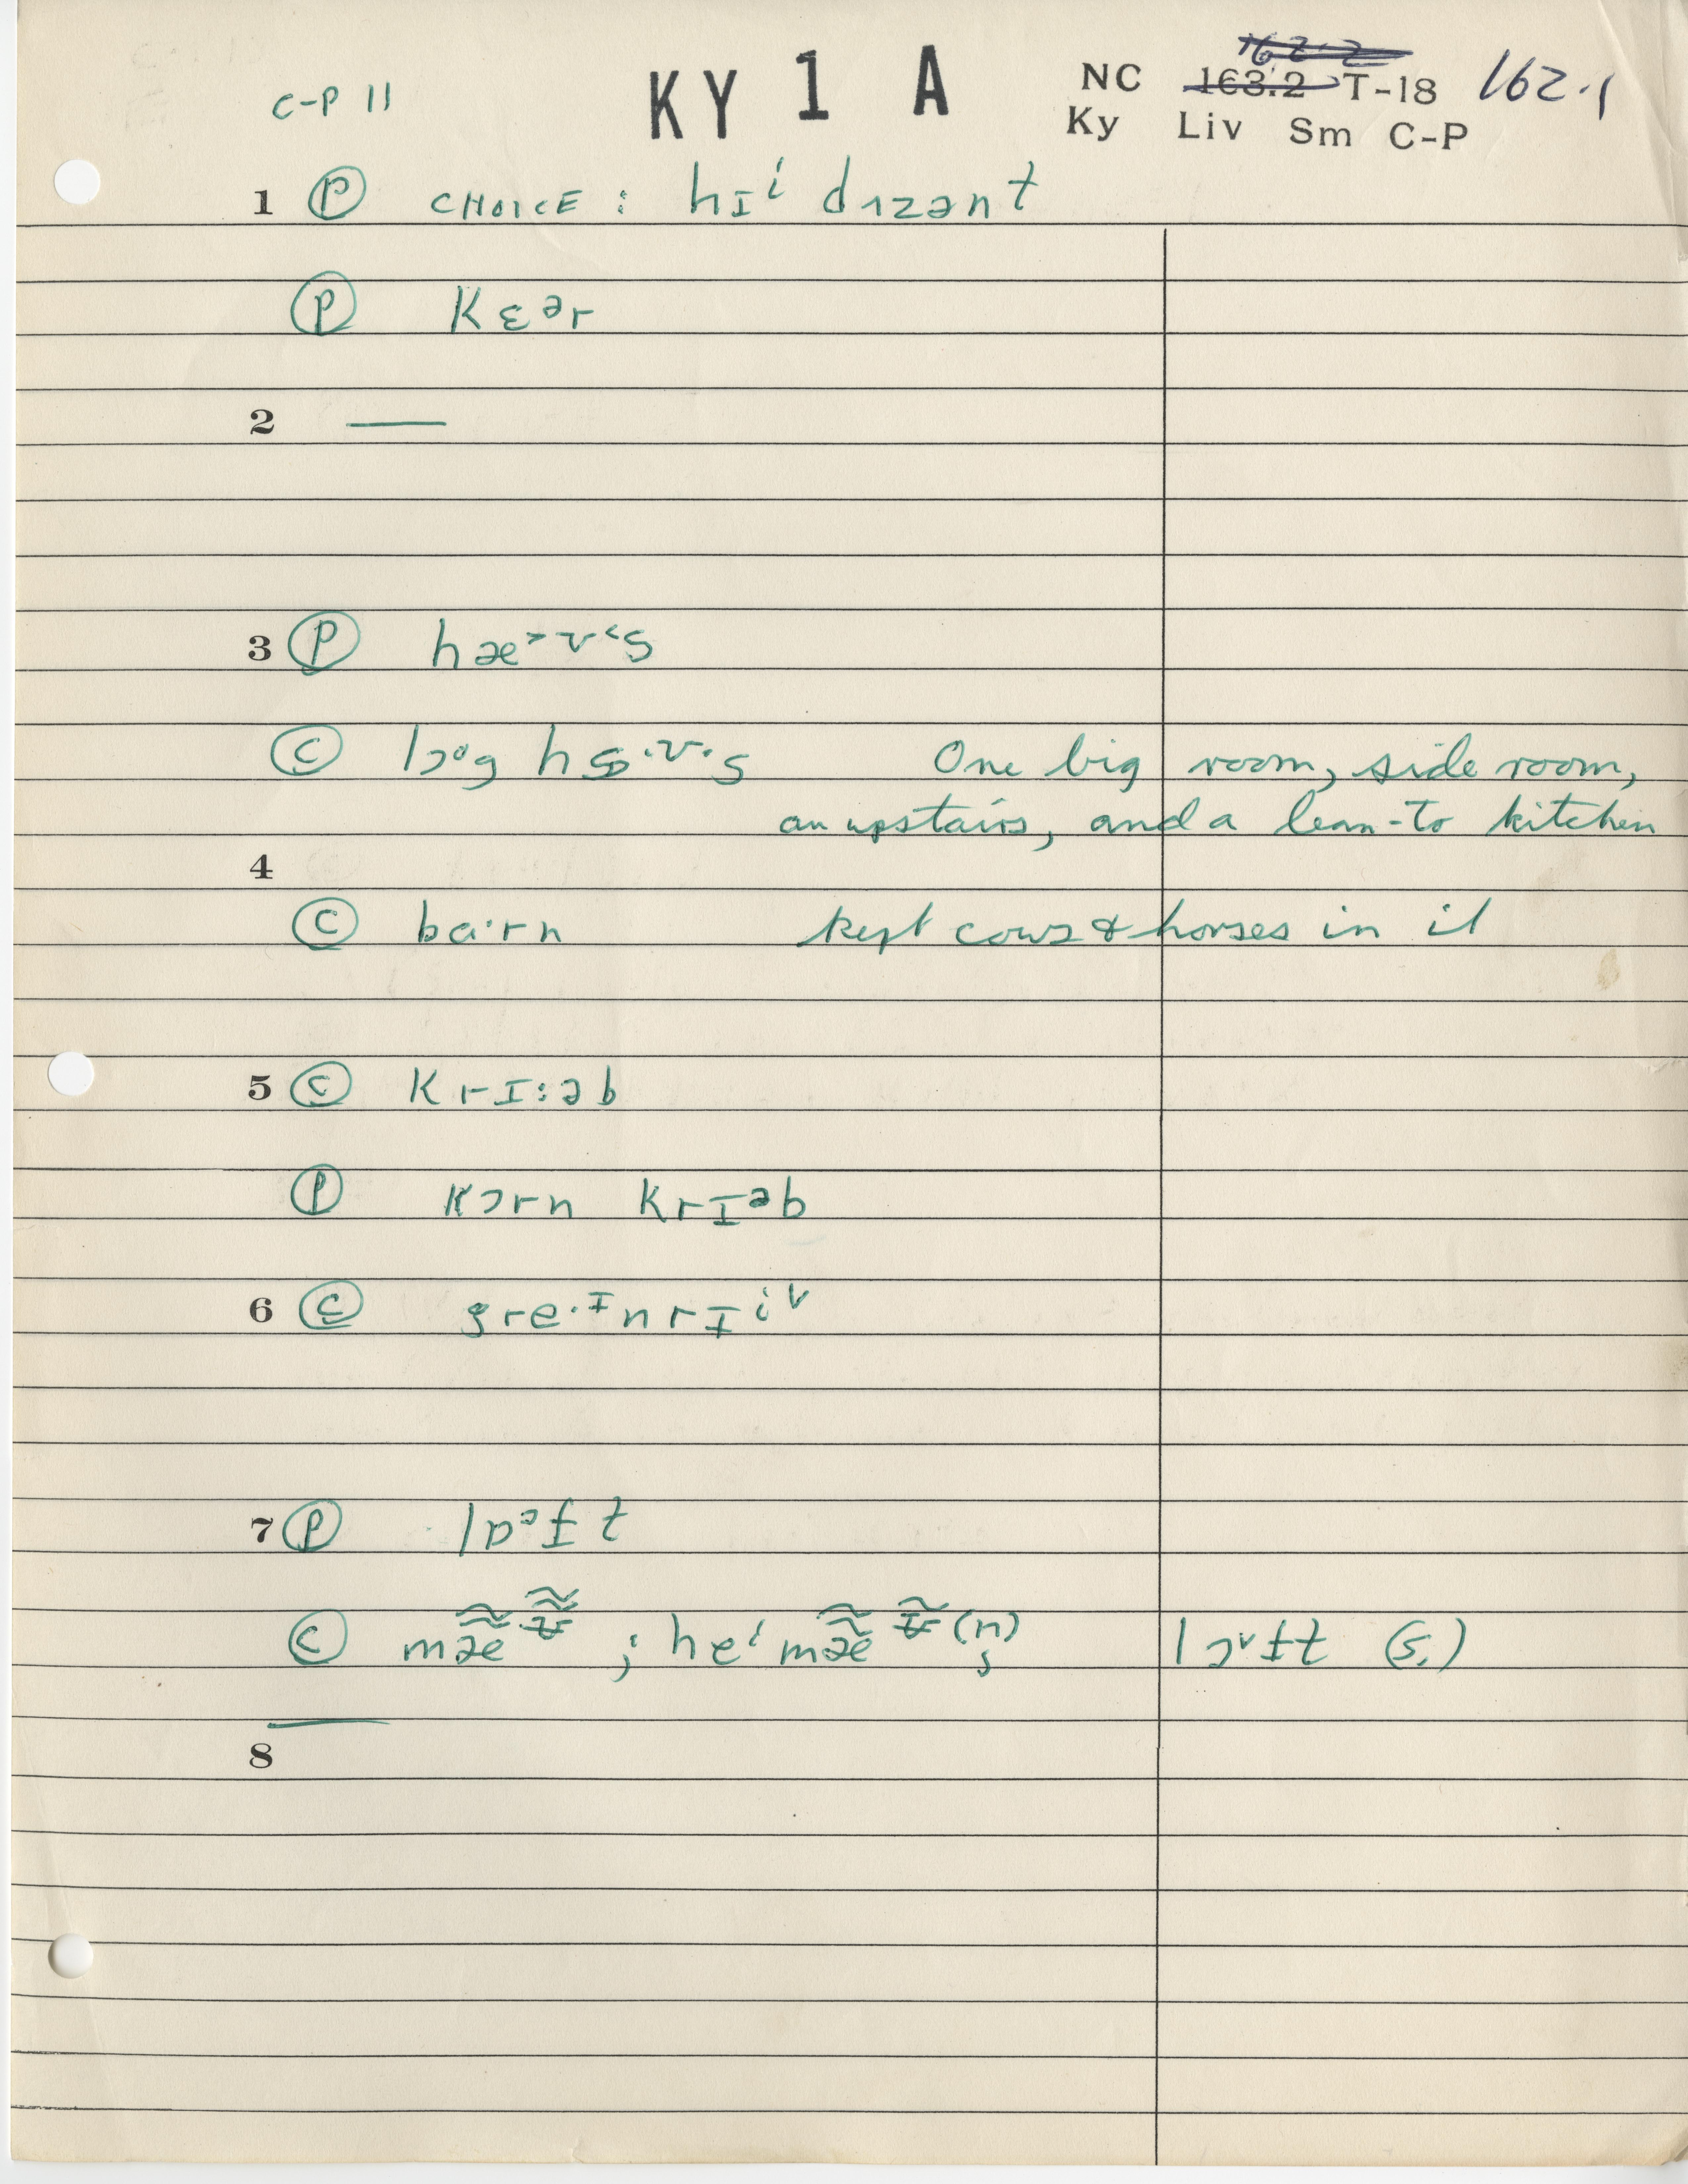 C-P 11 KY 1 A NC 163.2 T-18 162.1
162.2
Ky Liv Sm C-P
1 Ⓟ CHOICE: hɪⁱ dɪzənt
Ⓟ kɛᵊr
2 —
3 Ⓟ hæ˃ʊ˂s
Ⓒ lɔᵒg
One big room, side room,
an upstairs, and a lean-to kitchen
4
Ⓒ ba·rn kept cows & horses in it
5 Ⓒ krɪ:əb
Ⓟ kɔrn krɪᵊb
6 Ⓒ gre·ᶦnrɪⁱ
7 Ⓟ lɒᵓft
Ⓒ lɔft (s.)
8 —